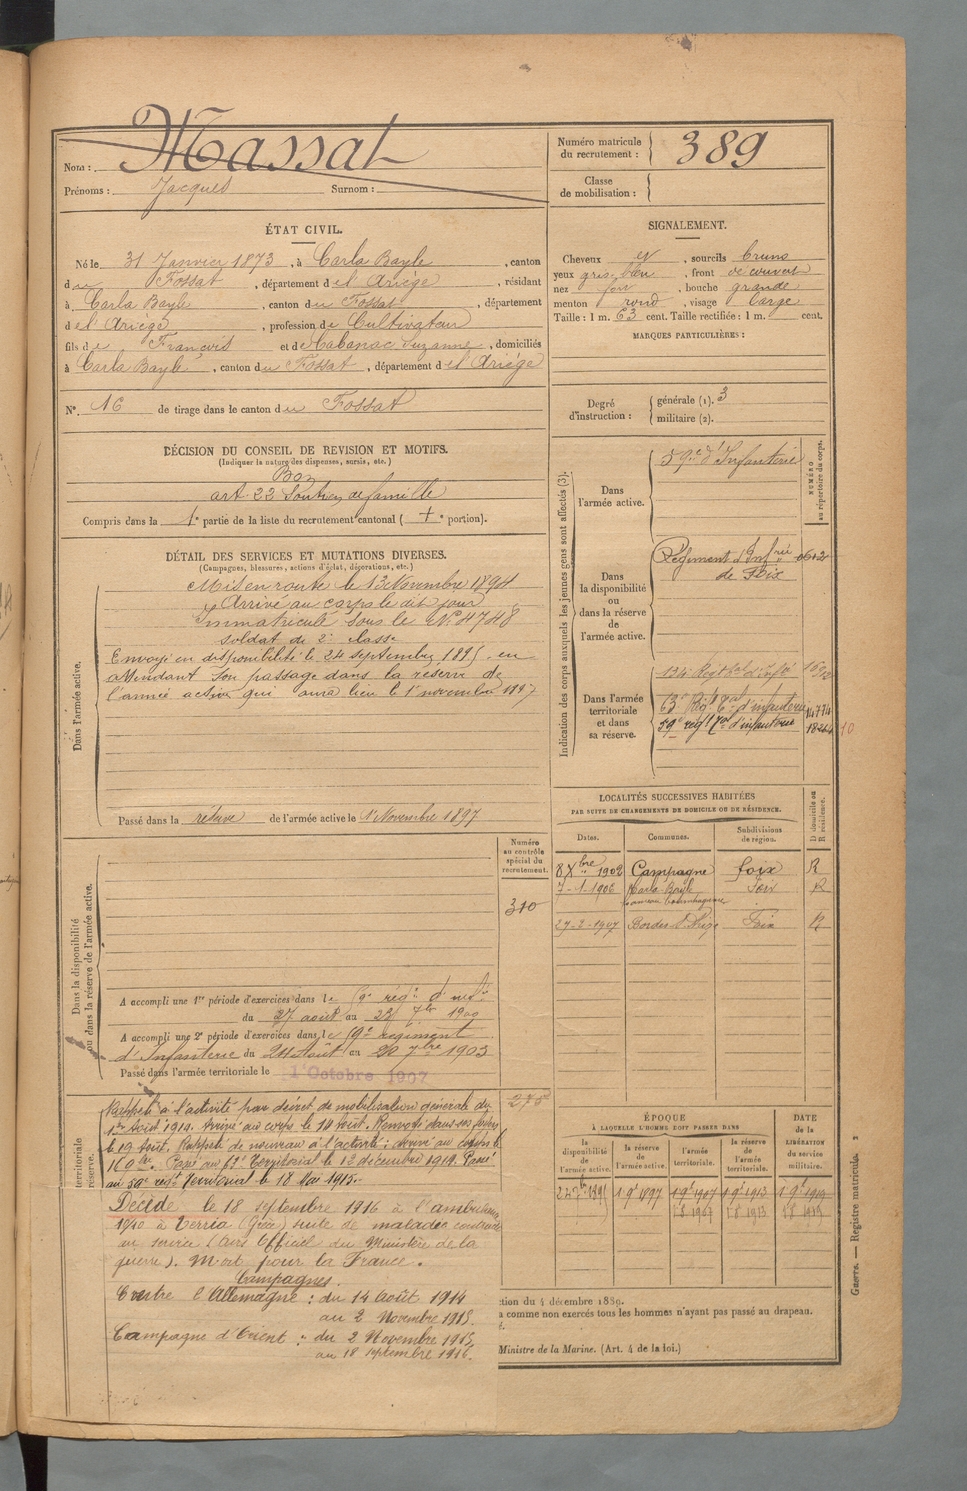 Nom : Massat
Prénoms : Jacques Surnom :
Numéro matricule du recrutement : 389
Classe de mobilisation :
ÉTAT CIVIL.
Né le 31 Janvier 1873, à Carla Bayle, canton
du Fossat, département de l'Ariège, résidant
à Carla Bayle, canton du Fossat, département
de l'Ariège, profession de Cultivateur
fils de François et de Cabanac Suzanne, domiciliés
à Carla Bayle, canton du Fossat, département de l'Ariège
N° 16 de tirage dans le canton du Fossat
SIGNALEMENT.
Cheveux et, sourcils bruns
yeux gris-bleu, front découvert
nez fort, bouche grande
menton rond, visage large
Taille : 1 m. 63 cent. Taille rectifiée : 1 m. cent.
MARQUES PARTICULIÈRES :
Degré d'instruction : générale (1). 3
militaire (2).
DÉCISION DU CONSEIL DE REVISION ET MOTIFS.
(Indiquer la nature des dispenses, sursis, etc.)
Bon
art. 22 Soutien de famille
Compris dans la 1e partie de la liste du recrutement cantonal ( e portion).
DÉTAIL DES SERVICES ET MUTATIONS DIVERSES.
(Campagnes, blessures, actions d'éclat, décorations, etc.)
Dans l'armée active.
Mis en route le 13 Novembre 1894
Arrivé au corps le dit jour
Immatriculé sous le N° 4748
soldat de 2e classe
Envoyé en disponibilité le 24 septembre 1895 en
attendant son passage dans la réserve de
l'armée active qui aura lieu le 1er novembre 1897
Passé dans la réserve de l'armée active le 1er Novembre 1897
Indication des corps auxquels les jeunes gens sont affectés (3).
NUMÉRO au répertoire du corps.
Dans l'armée active.
59e d'Infanterie
Dans la disponibilité ou dans la réserve de l'armée active.
Régiment d'Infrie
de Foix
Dans l'armée territoriale et dans sa réserve.
134e Régt tal d'infie
63e Régt Tal d'infanterie
59e régt Tal d'infanterie
LOCALITÉS SUCCESSIVES HABITÉES
PAR SUITE DE CHANGEMENTS DE DOMICILE OU DE RÉSIDENCE.
Dates. Communes. Subdivisions de région. D domicile ou R résidence.
8 Xbre 1902 Campagne Foix R
7-1-1906 Carla Bayle Foix R
27-2-1907 Bordes Foix R
Dans la disponibilité ou dans la réserve de l'armée active.
Numéro au contrôle spécial du recrutement.
310
A accompli une 1re période d'exercices dans le 59e régt d'infie
du 27 août au 23 7bre 1900
A accompli une 2e période d'exercices dans le 59e régiment
d'Infanterie du 24 Août au 20 7bre 1903
Passé dans l'armée territoriale le 1er Octobre 1907
territoriale
réserve.
Rappelé à l'activité par décret de mobilisation générale du
1er Août 1914. Arrivé au corps le 14 Août. Renvoyé dans ses foyers
le 19 Août. Rappelé de nouveau à l'activité : arrivé au corps le
Passé au Territorial le 1er décembre 1914. Passé
au 59e régt Territorial le 18 Mai 1915.
Décédé le 18 septembre 1916 à l'ambulance
à Verria (Grèce) suite de maladie contractée
au service (Avis Officiel du Ministère de la
guerre). Mort pour la France.
Campagnes.
Contre l'Allemagne : du 14 Août 1914
au 2 Novembre 1915.
Campagne d'Orient : du 2 Novembre 1915
au 18 septembre 1916.
ÉPOQUE
À LAQUELLE L'HOMME DOIT PASSER DANS
la disponibilité de l'armée active. la réserve de l'armée active. l'armée territoriale. la réserve de l'armée territoriale.
DATE de la LIBÉRATION du service militaire.
1 9bre 1897 1 9bre 1907 1 9bre 1913 1 9bre 1919
tion du 4 décembre 1889.
a comme non exercés tous les hommes n'ayant pas passé au drapeau.
Ministre de la Marine. (Art. 4 de la loi.)
Guerre. — Registre matricule. 2